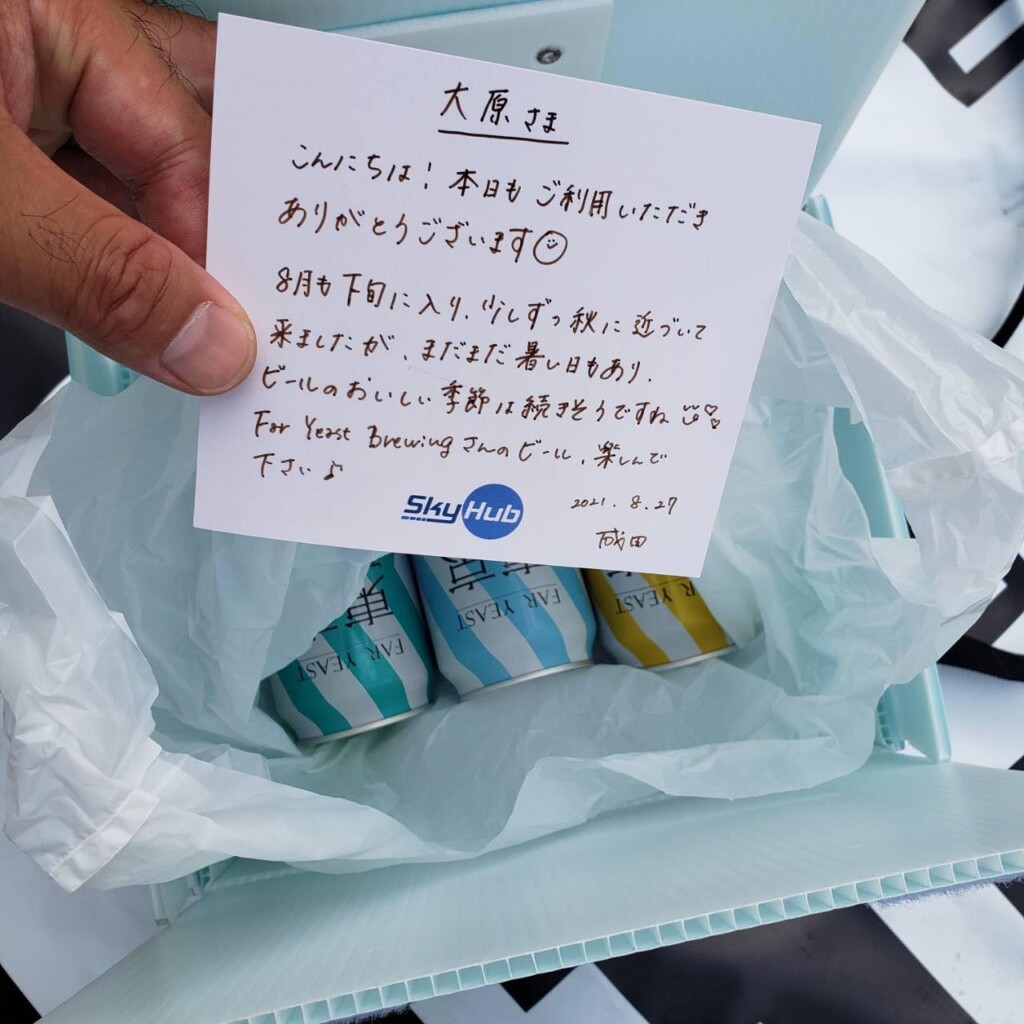 大原さま
こんにちは! 本日もご利用いただき
ありがとうございます☺
8月も下旬に入り、少しずつ秋に近づいて
来ましたが、まだまだ暑い日もあり、
ビールのおいしい季節は続きそうですね
Far Yeast Brewingさんのビール、楽しんで
下さい♪
SkyHub
2021.8.27
成田
東
FAR YEAST
東京
FAR YEAST
R YEAST